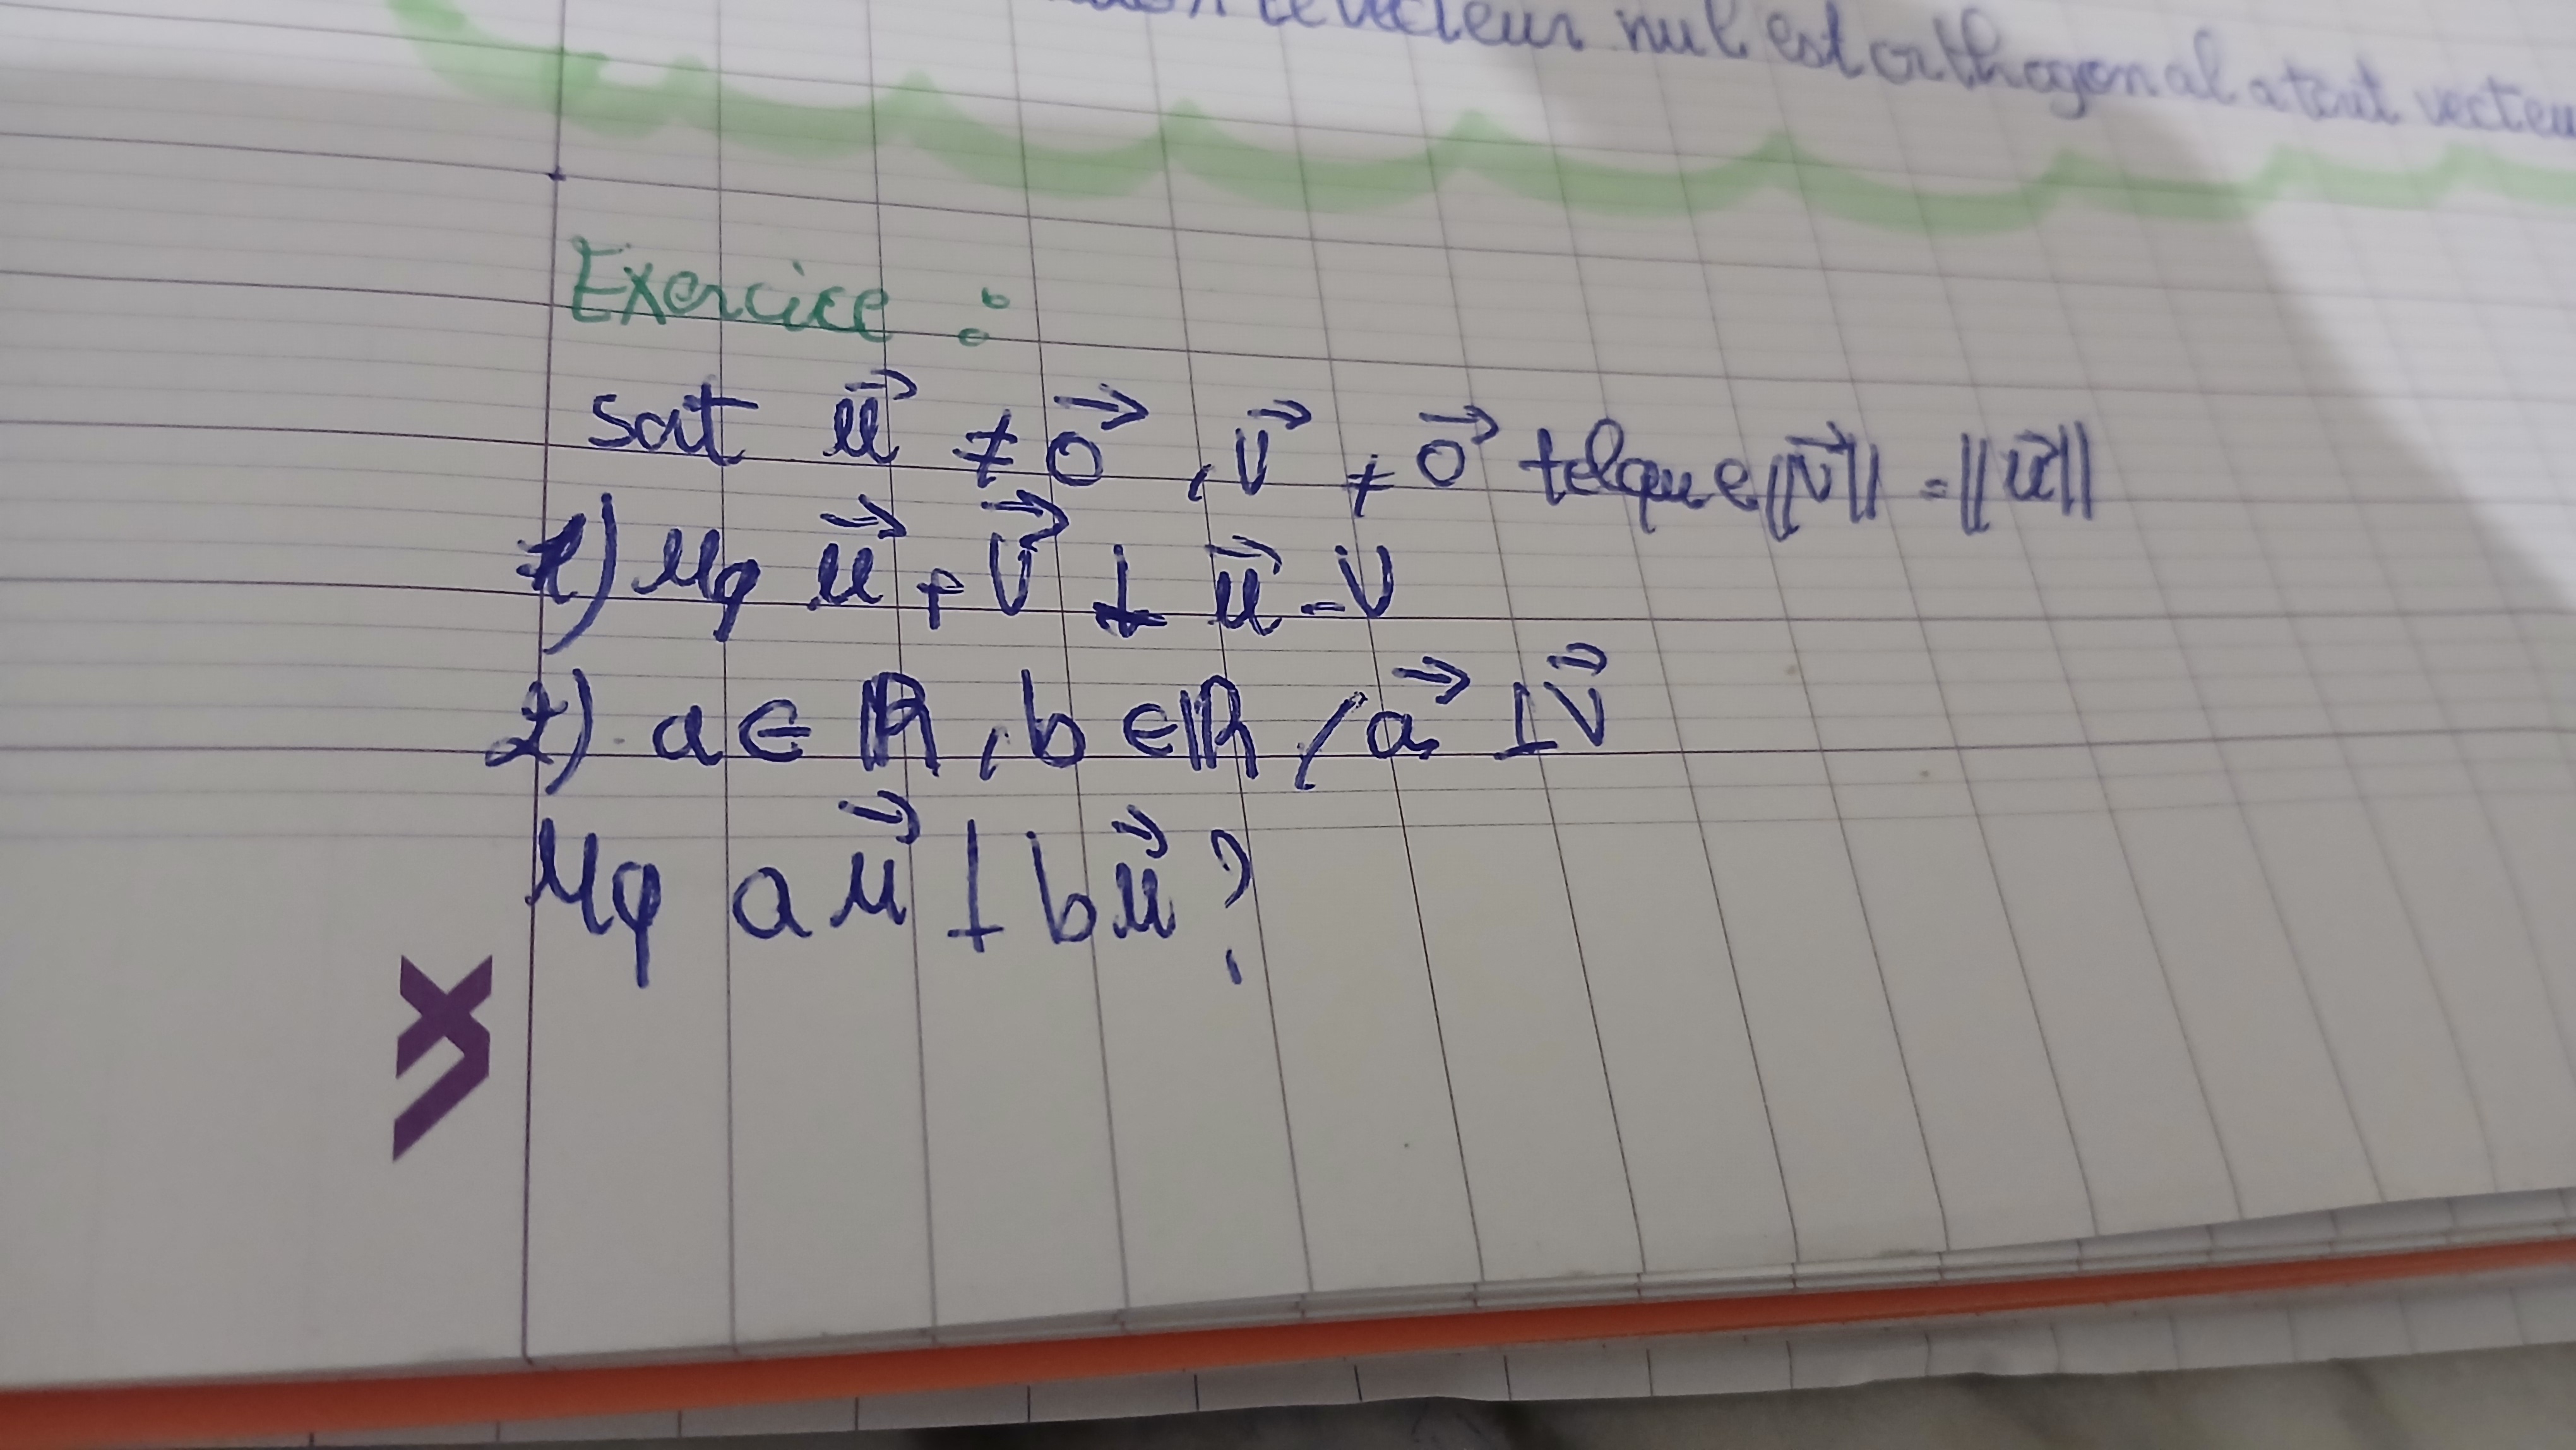 vecteur nul est orthogonal a tout vecteur
Exercice :
soit u⃗ ≠ 0⃗ , v⃗ ≠ 0⃗ telque ||v⃗|| = ||u⃗||
1) Mq u⃗ + v⃗ ⊥ u⃗ - v
2) a ∈ ℝ , b ∈ ℝ / a⃗ ⊥ v⃗
Mq a u⃗ ⊥ b u⃗ ?